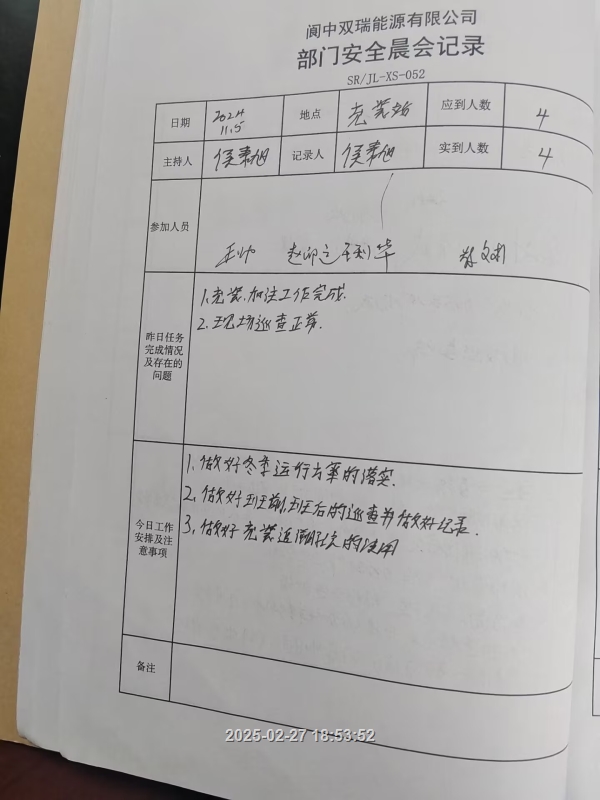 阆中双瑞能源有限公司
部门安全晨会记录
SR/JL-XS-052
日期 2024 11.5 地点 充装站 应到人数 4
主持人 侯秉旭 记录人 侯秉旭 实到人数 4
参加人员 王帅
昨日任务完成情况及存在的问题
1.充装.加注工作完成.
2.现场巡查正常.
今日工作安排及注意事项
1.做好冬季运行方案的落实.
2.做好班前,班后的巡查并做好记录.
3.做好充装 的使用
备注
2025-02-27 18:53:52